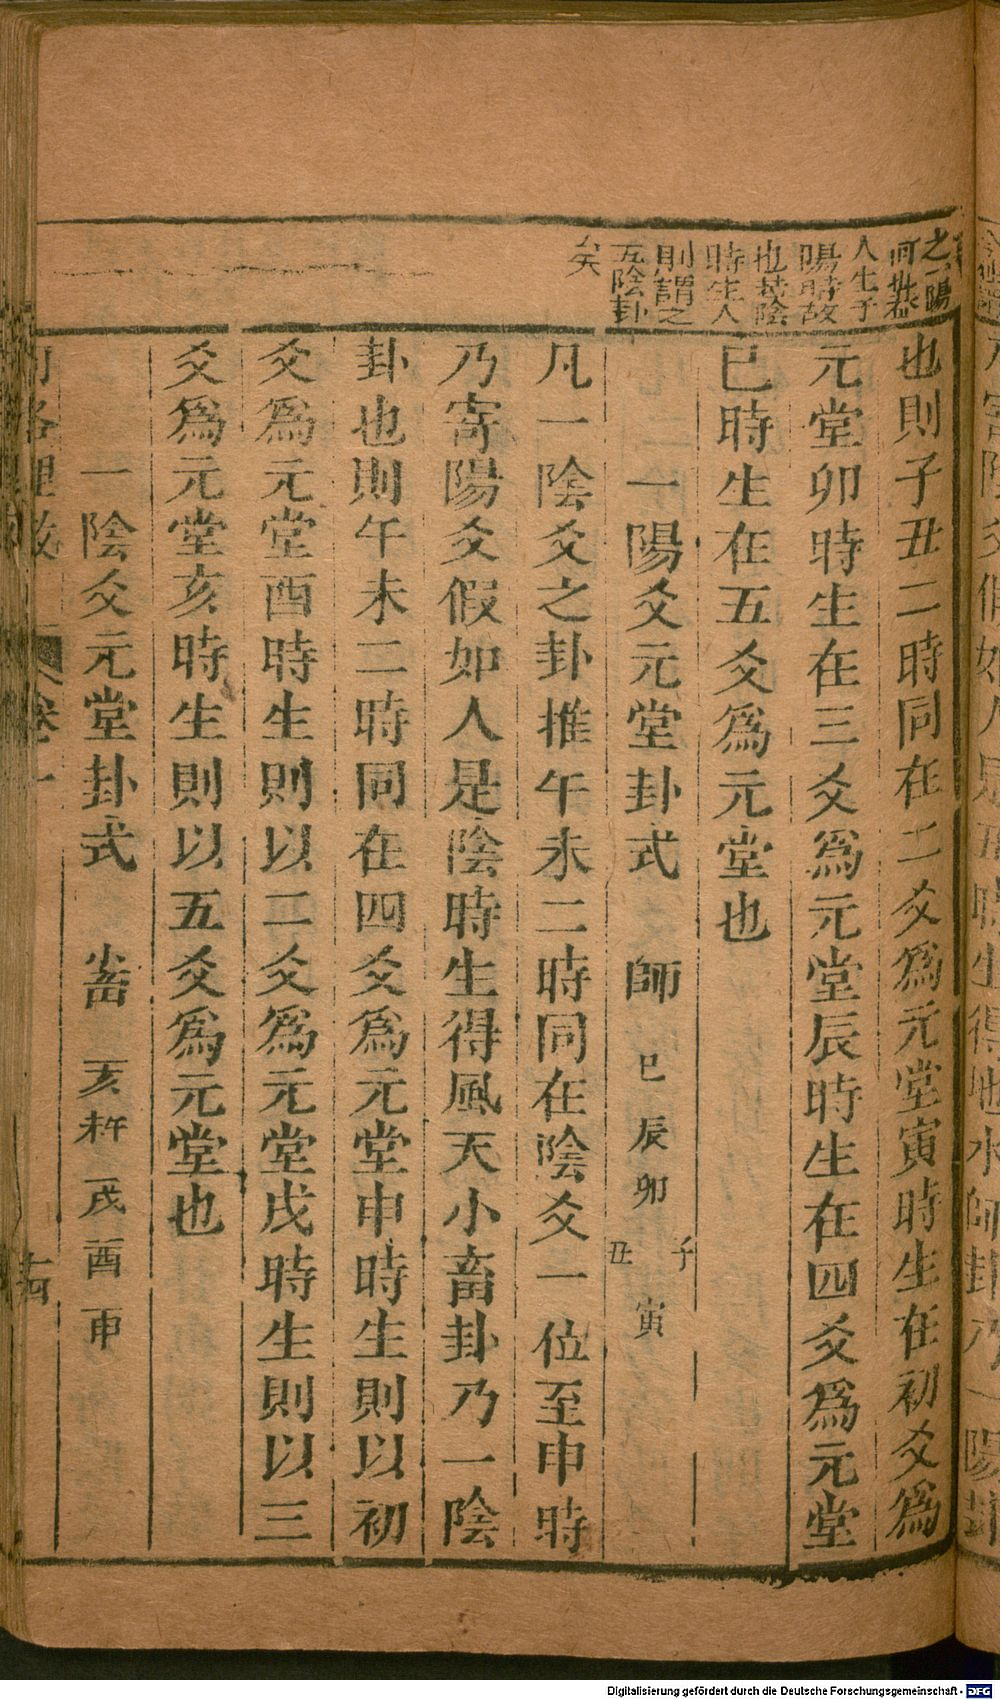 之一陽
何哉盖
人生子
陽時故
也其陰
時生人
則謂之
五陰卦
矣
也則子丑二時同在二爻爲元堂寅時生在初爻爲
元堂卯時生在三爻爲元堂辰時生在四爻爲元堂
巳時生在五爻爲元堂也
一陽爻元堂卦式 師 巳 辰 卯 子丑 寅
凡一陰爻之卦推午未二時同在陰爻一位至申時
乃寄陽爻假如人是陰時生得風天小畜卦乃一陰
卦也則午未二時同在四爻爲元堂申時生則以初
爻爲元堂酉時生則以二爻爲元堂戌時生則以三
爻爲元堂亥時生則以五爻爲元堂也
一陰爻元堂卦式 小畜 亥 午未 戌 酉 申
卷一
十四
Digitalisierung gefördert durch die Deutsche Forschungsgemeinschaft - DFG